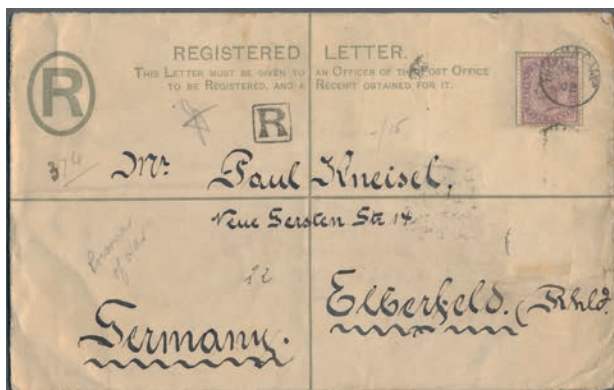 REGISTERED LETTER.
THIS LETTER MUST BE GIVEN TO AN OFFICER OF THE POST OFFICE
TO BE REGISTERED, AND A RECEIPT OBTAINED FOR IT.
R
R
Mr. Paul Kneisel,
Neue Gersten Str 14
Prisoner
of war
22
Elberfeld. (Rhld.
Germany.